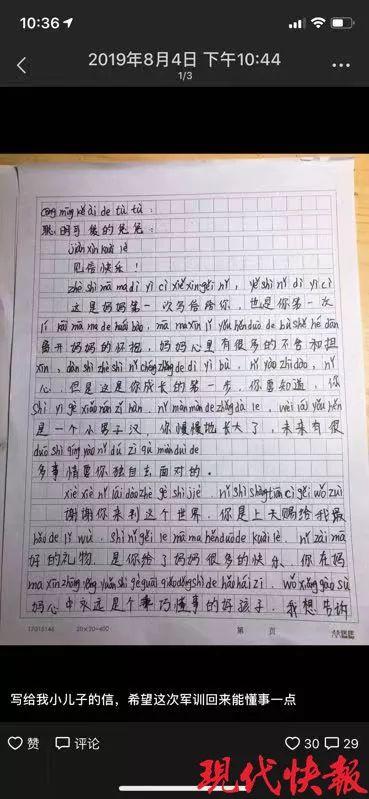 10:36
2019年8月4日 下午10:44
1/3
cōng míng kě ài de tù tù:
聪明可爱的兔兔:
jiàn xìn kuài lè
见信快乐!
zhè shì mā ma dì yī cì xiě xìn gěi nǐ, yě shì nǐ dì yī cì
这是妈妈第一次写给你,也是你第一次
lí kāi mā ma de huái bào, mā ma xīn lǐ yǒu hěn duō de bù shě hé dān
离开妈妈的怀抱,妈妈心里有很多的不舍和担
xīn, dàn shì zhè shì nǐ chéng zhǎng de dì yī bù, nǐ yào zhī dào, nǐ
心,但是这是你成长的第一步,你要知道,你
shì yí gè xiǎo nán zǐ hàn, nǐ màn màn de zhǎng dà le, wèi lái yǒu hěn
是一个小男子汉,你慢慢地长大了,未来有很
duō shì qing yào nǐ dú zì qù miàn duì de
多事情要你独自去面对的。
xiè xiè nǐ lái dào zhè gè shì jiè, nǐ shì shàng tiān cì gěi wǒ zuì
谢谢你来到这个世界,你是上天赐给我最
hǎo de lǐ wù, shì nǐ gěi le mā ma hěn duō de kuài lè, nǐ zài mā
好的礼物,是你给了妈妈很多的快乐,你在妈
ma xīn zhōng yǒng yuǎn shì gè guāi qiǎo dǒng shì de hǎo hái zi, wǒ xiǎng gào sù
妈心中永远是个乖巧懂事的好孩子,我想告诉
20×20=400 第 页
写给我小儿子的信,希望这次军训回来能懂事一点
赞 评论 30 29
现代快報